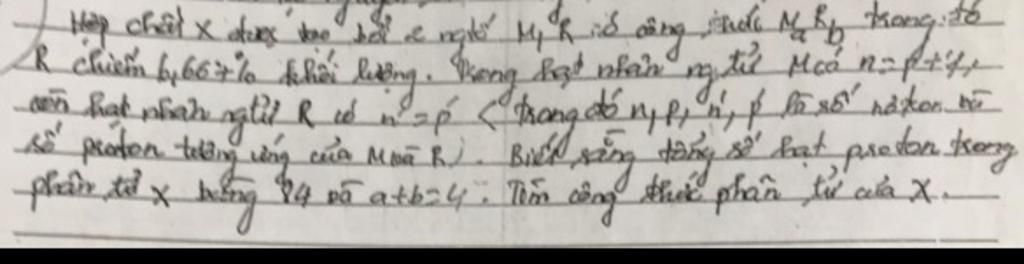 Hợp chất X được tạo bởi 2 ngtố M, R có công thức MaRb trong đó
R chiếm 6,667% khối lượng. Trong hạt nhân ng.tử M có n = p + 4,
còn hạt nhân ngtử R có n' = p' (trong đó n, p, n', p' là số nơtron và
số proton tương ứng của M và R). Biết rằng tổng số hạt proton trong
phân tử X bằng 84 và a+b=4. Tìm công thức phân tử của X.